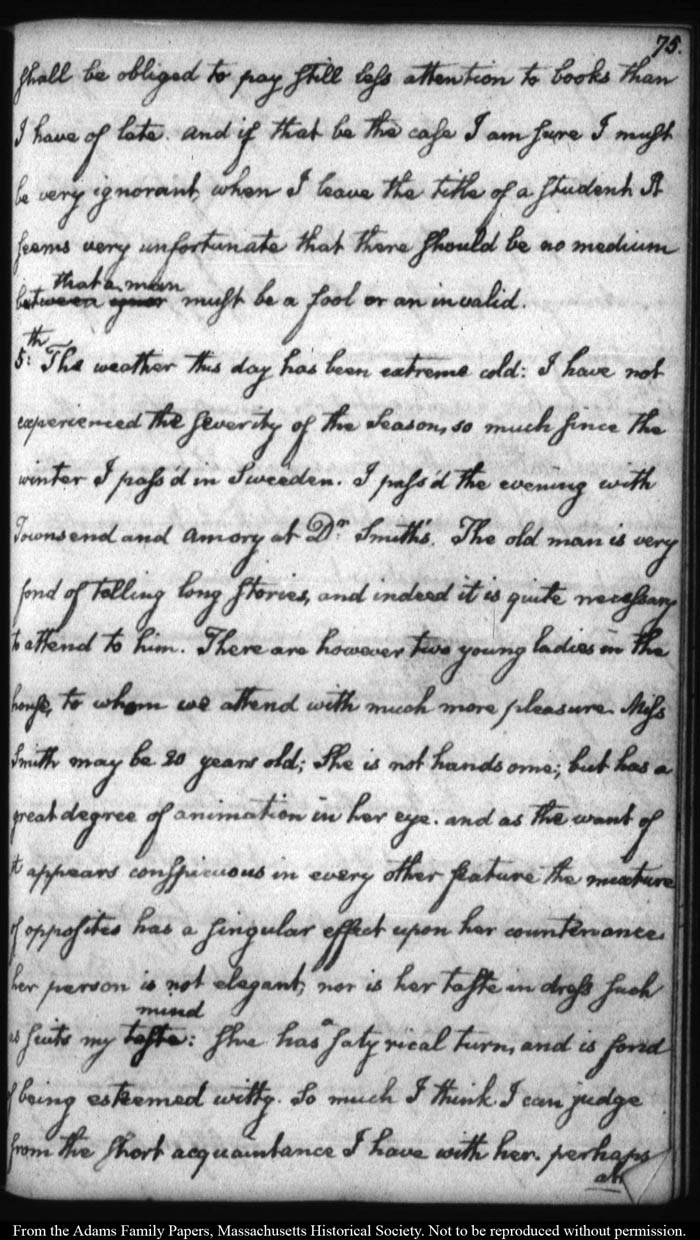 75.
shall be obliged to pay still less attention to books than
I have of late. and if that be the case I am sure I must
be very ignorant, when I leave the title of a student. It
seems very unfortunate that there should be no medium
that a man
between must be a fool or an invalid.
th
5: The weather this day has been extreme cold: I have not
experienced the severity of the Season, so much since the
winter I pass'd in Sweeden. I pass'd the evening with
Townsend and Amory at Dr. Smith's. The old man is very
fond of telling long stories, and indeed it is quite necessary
to attend to him. There are however two young ladies in the
house, to whom we attend with much more pleasure. Miss
Smith may be 20 years old; She is not handsome; but has a
great degree of animation in her eye. and as the want of
it appears conspicuous in every other feature the mixture
of opposites has a singular effect upon her countenance.
her person is not elegant, nor is her taste in dress such
mind
as suits my taste: She has a satyrical turn, and is fond
of being esteemed witty. So much I think I can judge
from the short acquaintance I have with her. perhaps
an
From the Adams Family Papers, Massachusetts Historical Society. Not to be reproduced without permission.